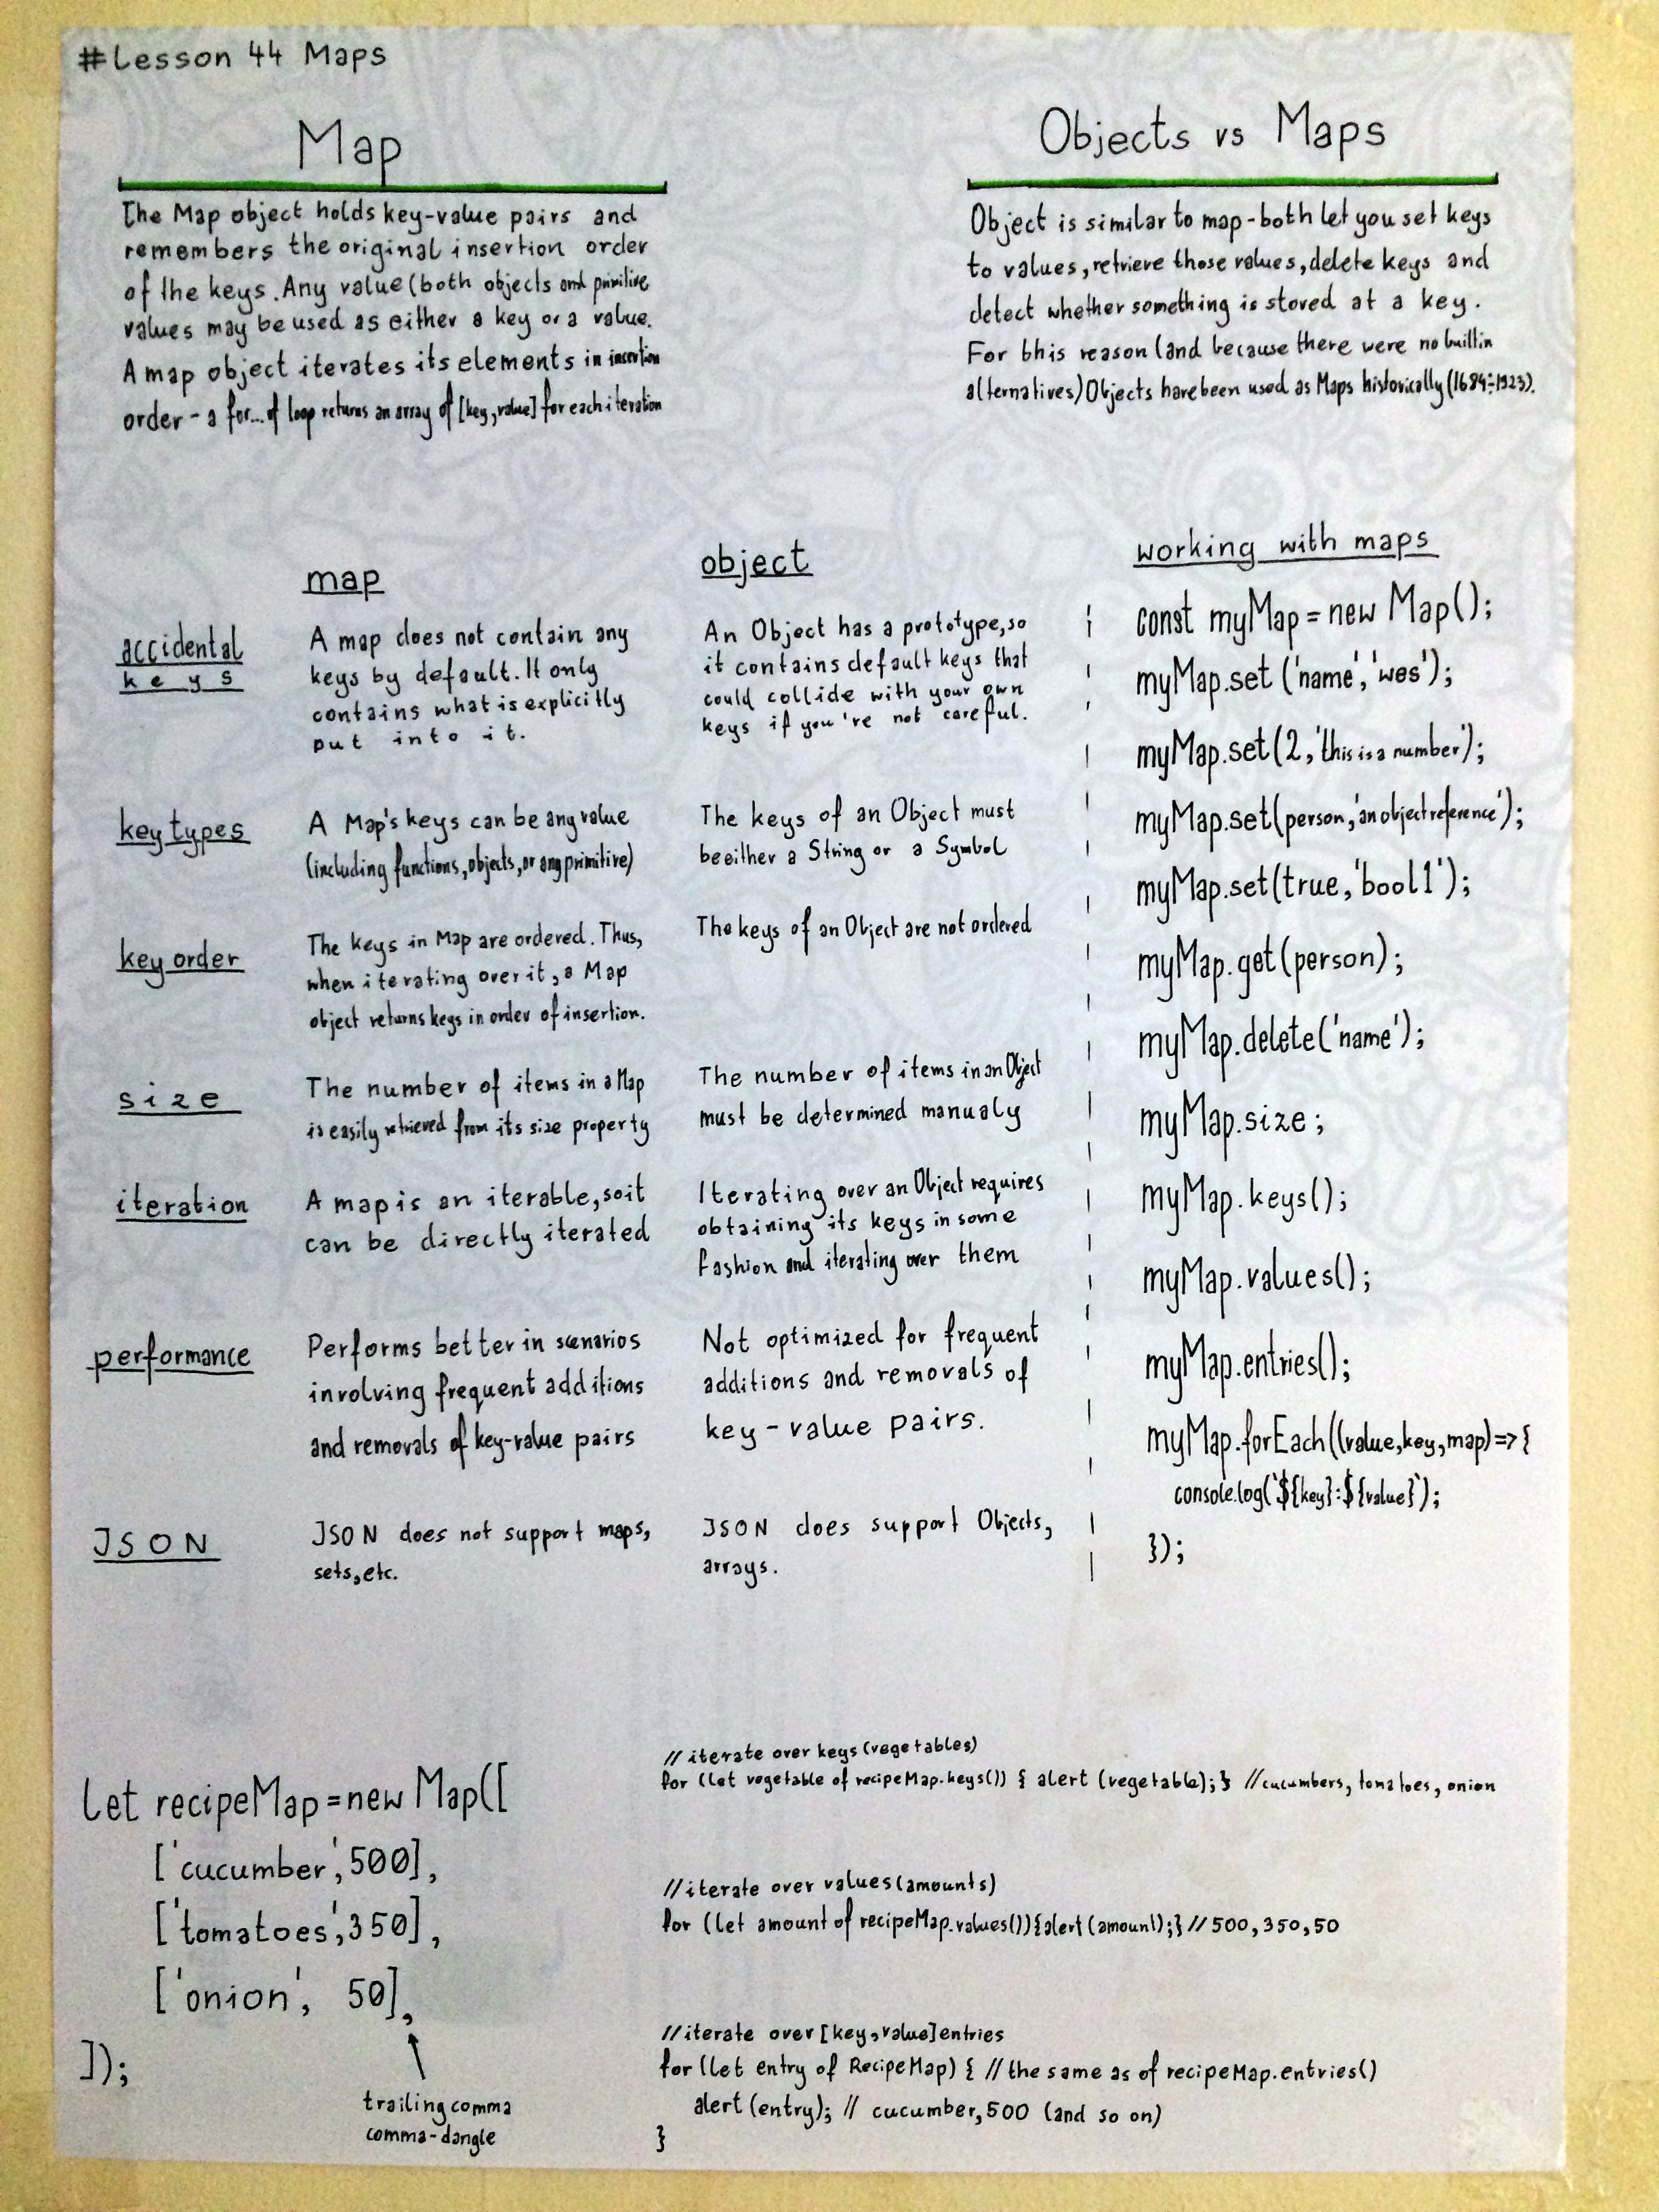 #Lesson 44 Maps
Map
The Map object holds key-value pairs and
remembers the original insertion order
of the keys. Any value (both objects and primitive
values may be used as either a key or a value.
A map object iterates its elements in insertion
order - a for...of loop returns an array of [key, value] for each iteration
Objects vs Maps
Object is similar to map - both let you set keys
to values, retrieve those values, delete keys and
detect whether something is stored at a key.
For this reason (and because there were no builtin
alternatives) Objects have been used as Maps historically (1684÷1923).
map
object
accidental
keys
A map does not contain any
keys by default. It only
contains what is explicitly
put into it.
An Object has a prototype, so
it contains default keys that
could collide with your own
keys if you're not careful.
key types
A Map's keys can be any value
(including functions, objects, or any primitive)
The keys of an Object must
be either a String or a Symbol
key order
The keys in Map are ordered. Thus,
when iterating over it, a Map
object returns keys in order of insertion.
The keys of an Object are not ordered
size
The number of items in a Map
is easily retrieved from its size property
The number of items in an Object
must be determined manualy
iteration
A map is an iterable, so it
can be directly iterated
Iterating over an Object requires
obtaining its keys in some
fashion and iterating over them
performance
Performs better in scenarios
involving frequent additions
and removals of key-value pairs
Not optimized for frequent
additions and removals of
key-value pairs.
JSON
JSON does not support maps,
sets, etc.
JSON does support Objects,
arrays.
working with maps
const myMap = new Map();
myMap.set('name', 'wes');
myMap.set(2, 'this is a number');
myMap.set(person, 'an object reference');
myMap.set(true, 'bool1');
myMap.get(person);
myMap.delete('name');
myMap.size;
myMap.keys();
myMap.values();
myMap.entries();
myMap.forEach((value, key, map) => {
console.log(`${key}:${value}`);
});
let recipeMap = new Map([
['cucumber', 500],
['tomatoes', 350],
['onion', 50],
]);
trailing comma
comma-dangle
// iterate over keys (vegetables)
for (let vegetable of recipeMap.keys()) { alert (vegetable); } // cucumbers, tomatoes, onion
// iterate over values (amounts)
for (let amount of recipeMap.values()) { alert (amount); } // 500, 350, 50
// iterate over [key, value] entries
for (let entry of RecipeMap) { // the same as of recipeMap.entries()
alert (entry); // cucumber, 500 (and so on)
}